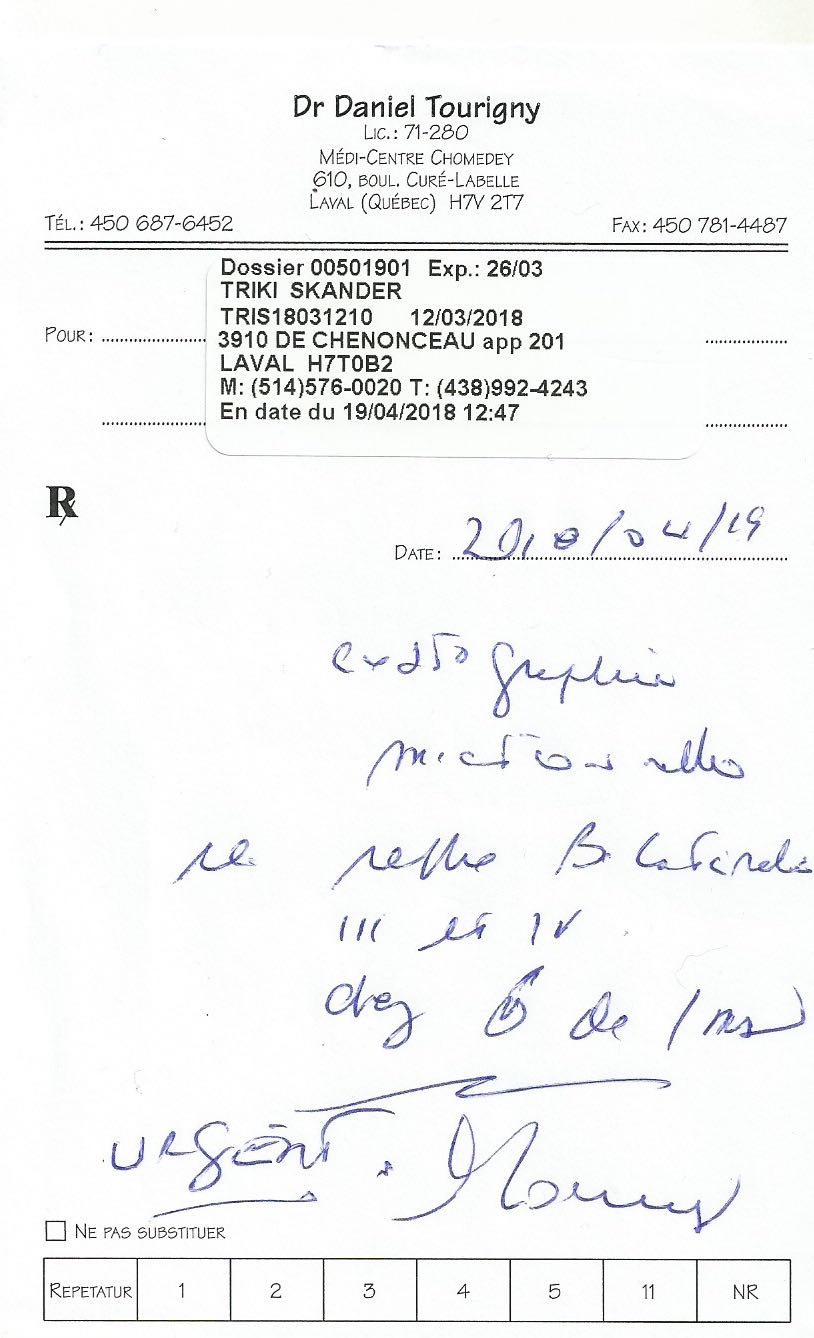 Dr Daniel Tourigny
Lic.: 71-280
Médi-Centre Chomedey
610, boul. Curé-Labelle
Laval (Québec) H7V 2T7
Tél.: 450 687-6452 Fax: 450 781-4487
Dossier 00501901 Exp.: 26/03
TRIKI SKANDER
TRIS18031210 12/03/2018
Pour: 3910 DE CHENONCEAU app 201
LAVAL H7T0B2
M: (514)576-0020 T: (438)992-4243
En date du 19/04/2018 12:47
Rx
Date: 2018/04/19
cystographie
mictionnelle
re reflux Bilatérale
III et IV
chez de 1 ms
URGENT.
Ne pas substituer
Repetatur 1 2 3 4 5 11 NR